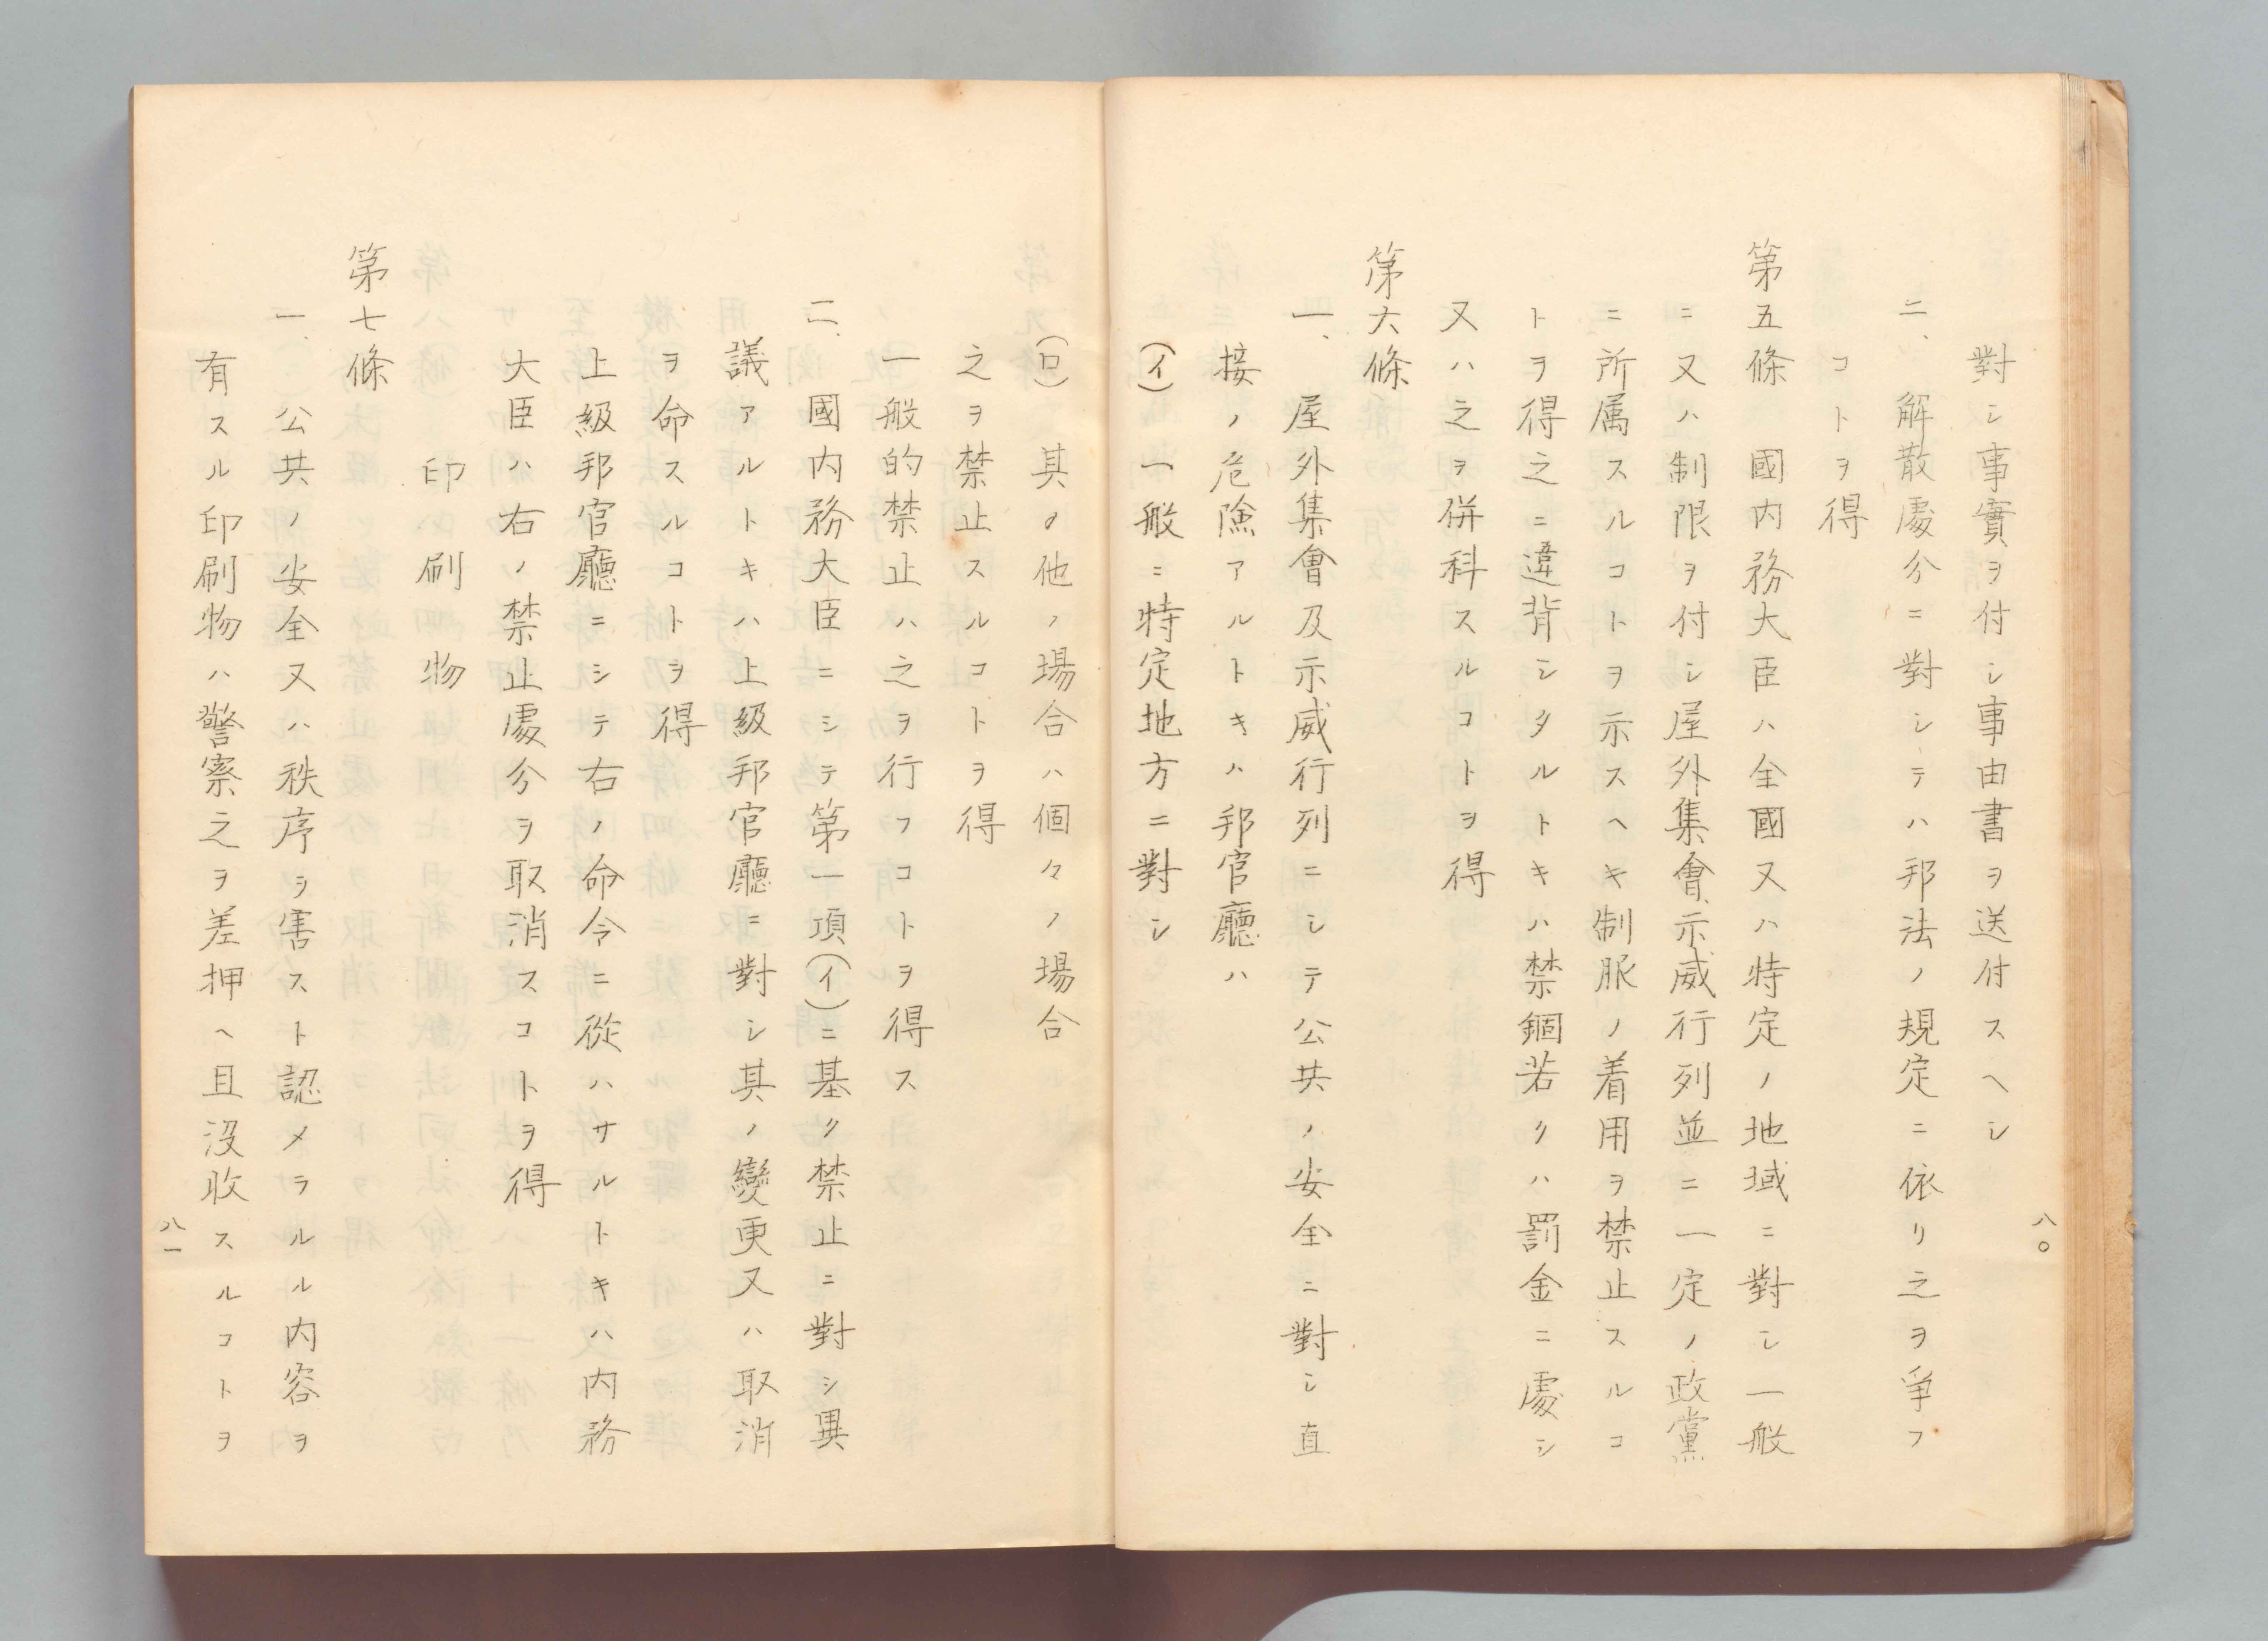 八〇
對シ事實ヲ付シ事由書ヲ送付スヘシ
二、解散處分ニ對シテハ邦法ノ規定ニ依リ之ヲ爭フ
コトヲ得
第五條　國内務大臣ハ全國又ハ特定ノ地域ニ對シ一般
ニ又ハ制限ヲ付シ屋外集會、示威行列並ニ一定ノ政黨
ニ所属スルコトヲ示スヘキ制服ノ着用ヲ禁止スルコ
トヲ得之ニ違背シタルトキハ禁錮若クハ罰金ニ處シ
又ハ之ヲ併科スルコトヲ得
第六條
一、屋外集會及示威行列ニシテ公共ノ安全ニ對シ直
接ノ危險アルトキハ邦官廳ハ
(イ)一般ニ特定地方ニ對シ
(ロ)其ノ他ノ場合ハ個々ノ場合
之ヲ禁止スルコトヲ得
一般的禁止ハ之ヲ行フコトヲ得ス
二、國内務大臣ニシテ第一項(イ)ニ基ク禁止ニ對シ異
議アルトキハ上級邦官廳ニ對シ其ノ變更又ハ取消
ヲ命スルコトヲ得
上級邦官廳ニシテ右ノ命令ニ從ハサルトキハ内務
大臣ハ右ノ禁止處分ヲ取消スコトヲ得
印刷物
第七條
一、公共ノ安全又ハ秩序ヲ害スト認メラルル内容ヲ
有スル印刷物ハ警察之ヲ差押ヘ且沒收スルコトヲ
八一